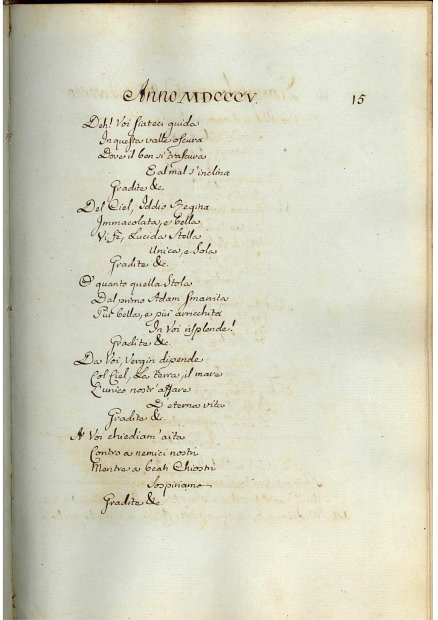 Anno MDCCCV. 15
Deh! Voi siateci guida
In questa valle oscura
Dove il ben si trascura
E al mal s'inclina
Gradite &c.
Del Ciel, Iddio Regina
Immacolata, e bella
Vi fè, Lucida Stella
Unica, e Sola
Gradite &c.
O' quanto quella Stola
Dal primo Adam smarrita
Piu' bella, e piu' arricchita
In Voi risplende!
Gradite &c.
Da Voi, Vergin dipende
Col Ciel, La terra, il mare
L'unico nostr' affare
D' eterna vita
Gradite &c.
A Voi chiediam' aita
Contro a nemici nostri
Mentre a beati Chiostri
Sospiriamo
Gradite &c.